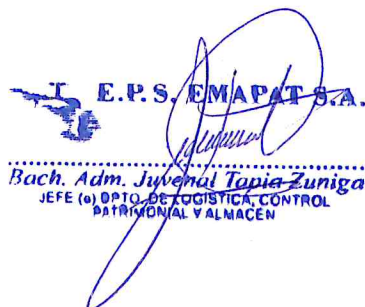 E.P.S. EMAPAT S.A.
Bach. Adm. Juvenal Tapia Zuniga
JEFE (e) DPTO. DE LOGISTICA, CONTROL
PATRIMONIAL Y ALMACEN